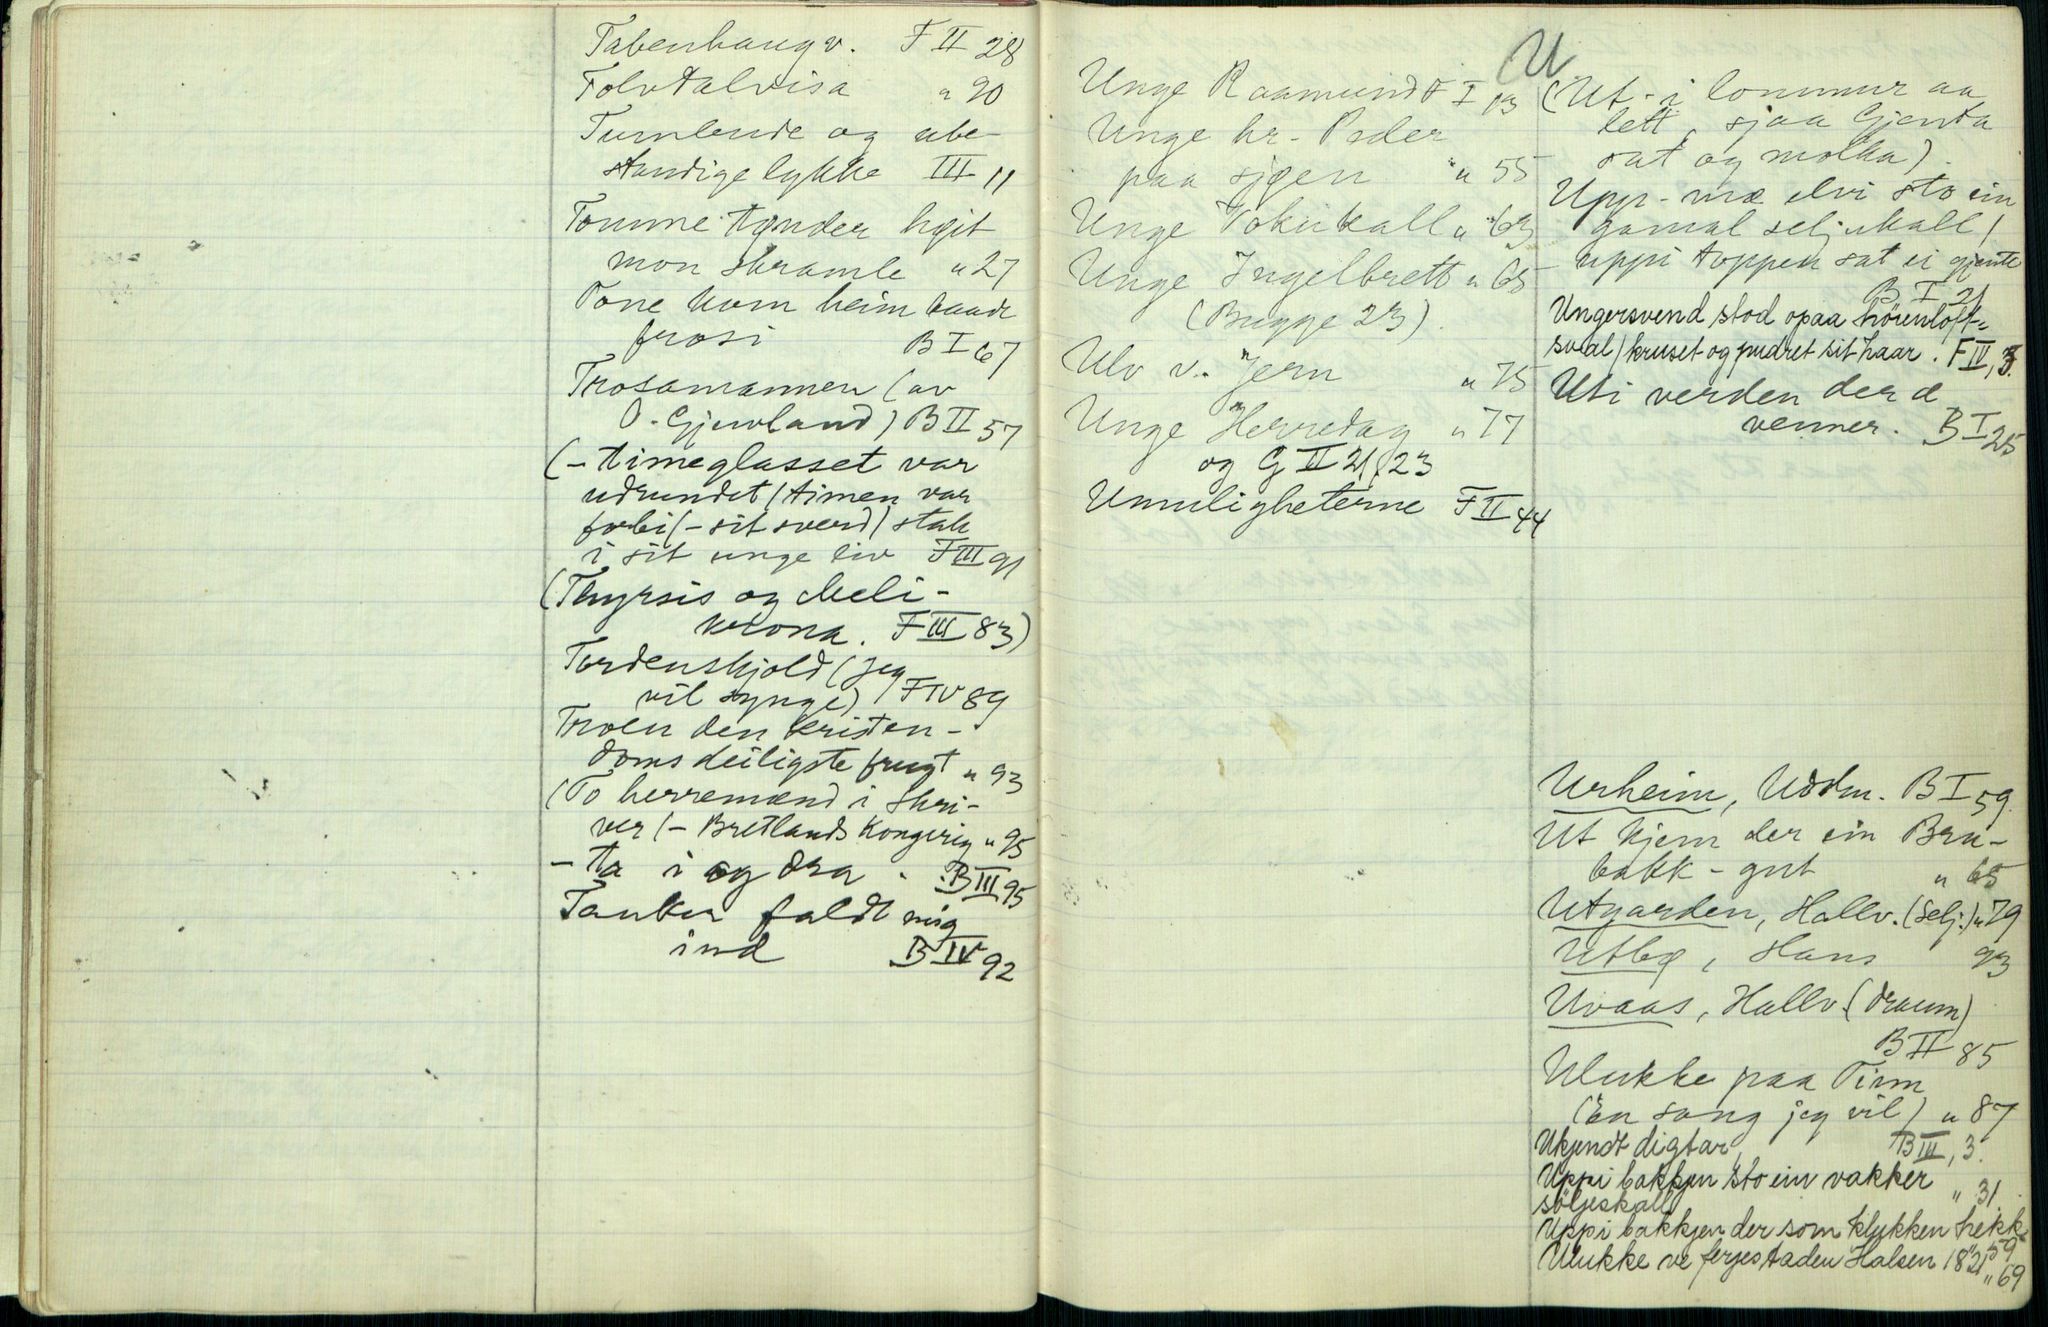 Tabenhaug v. F II 28
Tolvtalvisa " 90
Tumlende og ube-
standige lykke III 11
Tomme tønder høit
mon skramle " 27
Tone kom heim baade
frosi B I 67
Trosamannen (av
O. Gjuvland) B II 57
(- timeglasset var
udrundet / timen var
forbi / - sit sverd / stak
i sit unge liv F III 91
(Thyrsis og Meli-
krona. F III 83)
Tordenskjold (Jeg
vil synge) F IV 89
Troen den kristen-
doms deiligste frugt " 93
(To herremænd i skri-
ver / - Bretlands Kongerig " 95
- ta i og dra . B III 95
Tanker faldt mig
ind B IV 92
U
Unge Raamund F I 13
Unge hr. Peder
paa sjøen " 55
Unge Vokukall " 63
Unge Ingelbrett " 65
(Bugge 23).
Ulv v. Jern " 75
Unge Herredag " 77
og G II 21, 23
Umuligheterne F II 44
(Ut - i lommur aa
lett, sjaa Gjenta
sat og molka).
Upp - mæ elvi sto ein
gamal seljukall /
uppi toppen sat ei gjente
B I 21
Ungersvend stod opaa hörenloft-
sval / kruset og pudret sit haar. F IV, 3.
Uti verden der æ
venner. B I 25
Urheim, Uddm. B I 59
Ut kjem der ein Bru-
bakk - gut " 65
Utgarden, Hallv. (Selj.) " 79
Utbø, Hans 93
Uvaas, Hallv. (draum)
B II 85
Ulukke paa Tinn
(En sang jeg vil) " 87
Ukjendt digtar, B III, 3.
Uppi bakkjen sto ein vakker
söljeskall " 31.
Uppi bakkjen der som klukken hekk
" 59
Ulukke ve ferjestaden Halsen 1821 " 69